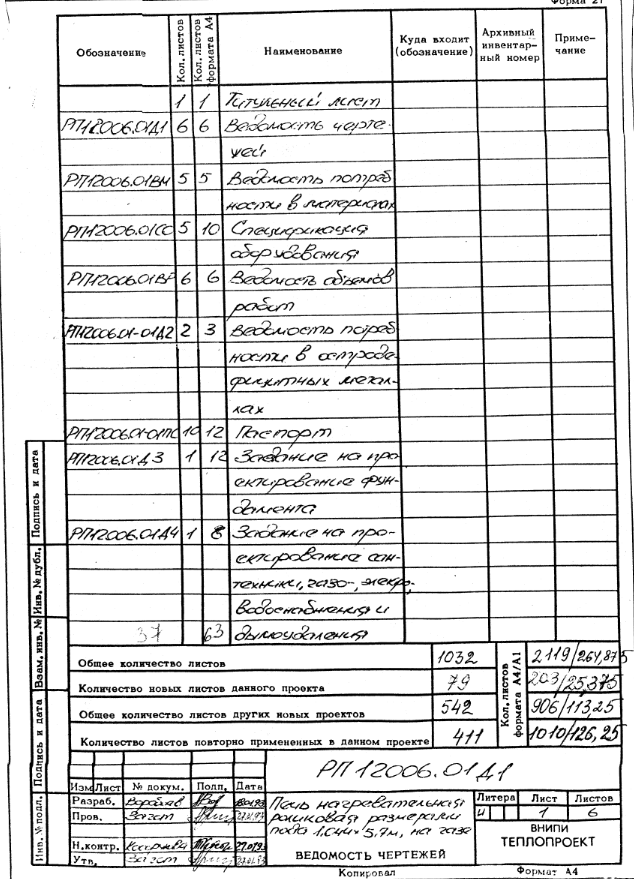 Форма 21
Обозначение Кол. листов Кол. листов формата А4 Наименование Куда входит (обозначение) Архивный инвентарный номер Примечание
1 1 Титульный лист
РП12006.01Д1 6 6 Ведомость черте-
жей
РП12006.01ВМ 5 5 Ведомость потреб
ности в материалах
РП12006.01СО 5 10 Спецификация
оборудования
РП12006.01ВР 6 6 Ведомость объемов
работ
РП12006.01-01Д2 2 3 Ведомость потреб
ности в остроде-
фицитных метал-
лах
РП12006.01-01ПС 10 12 Паспорт
РП12006.01Д3 1 12 Задание на про
ектирование фун-
дамента
РП12006.01Д4 1 8 Задание на про-
ектирование сан-
техники, газо-, электро-,
водоснабжения и
37 63 дымоудаления
Общее количество листов 1032 2119/264,875
Количество новых листов данного проекта 79 203/25,375
Общее количество листов других новых проектов 542 906/113,25
Количество листов повторно примененных в данном проекте 411 1010/126,25
Кол. листов формата А4/А1
РП12006.01Д1
Изм Лист № докум. Подп. Дата
Разраб.
Пров.
Н.контр.
Утв.
Печь нагревательная
роликовая размерами
пода 1,044×5,7м, на газе
ВЕДОМОСТЬ ЧЕРТЕЖЕЙ
Литера Лист Листов
И 1 6
ВНИПИ
ТЕПЛОПРОЕКТ
Копировал Формат А4
Подпись и дата
Инв. № дубл.
Взам. инв. №
Подпись и дата
Инв. № подл.